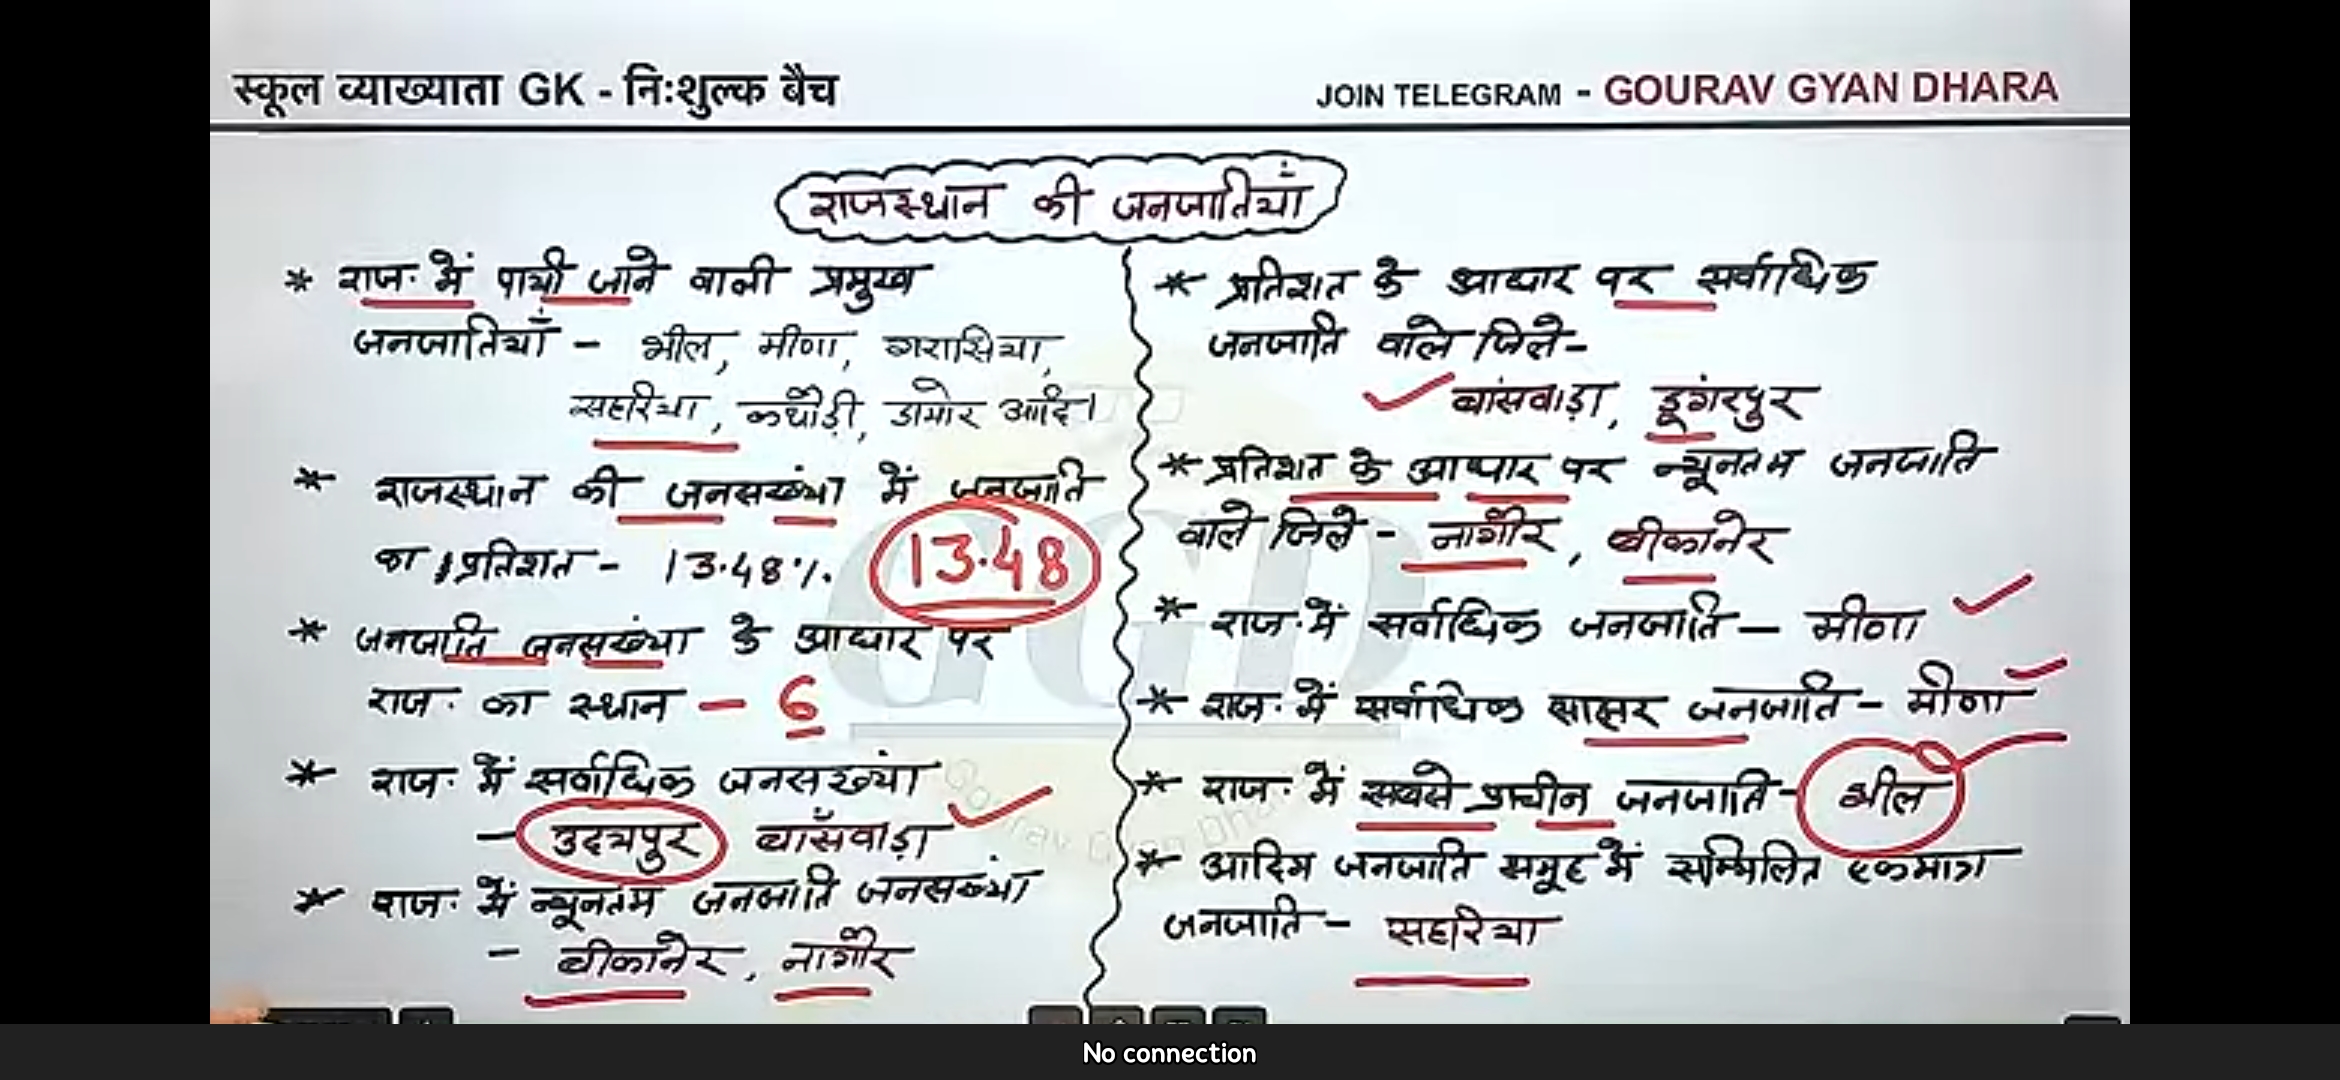 स्कूल व्याख्याता GK - निःशुल्क बैच
JOIN TELEGRAM - GOURAV GYAN DHARA
राजस्थान की जनजातियाँ
* राज. में पायी जाने वाली प्रमुख
जनजातियाँ - भील, मीणा, गरासिया,
सहरिया, कथौड़ी, डामोर आदि।
* राजस्थान की जनसंख्या में जनजाति
का प्रतिशत - 13.48%. 13.48
* जनजाति जनसंख्या के आधार पर
राज. का स्थान - 6
* राज. में सर्वाधिक जनसंख्या
- उदयपुर बाँसवाड़ा
* राज. में न्यूनतम जनजाति जनसंख्या
- बीकानेर, नागौर
* प्रतिशत के आधार पर सर्वाधिक
जनजाति वाले जिले-
बांसवाड़ा, डूंगरपुर
* प्रतिशत के आधार पर न्यूनतम जनजाति
वाले जिले - नागौर, बीकानेर
* राज. में सर्वाधिक जनजाति - मीणा
* राज. में सर्वाधिक साक्षर जनजाति - मीणा
* राज. में सबसे प्राचीन जनजाति - भील
* आदिम जनजाति समूह में सम्मिलित एकमात्र
जनजाति - सहरिया
GGD
Gourav Gyan Dhara
No connection